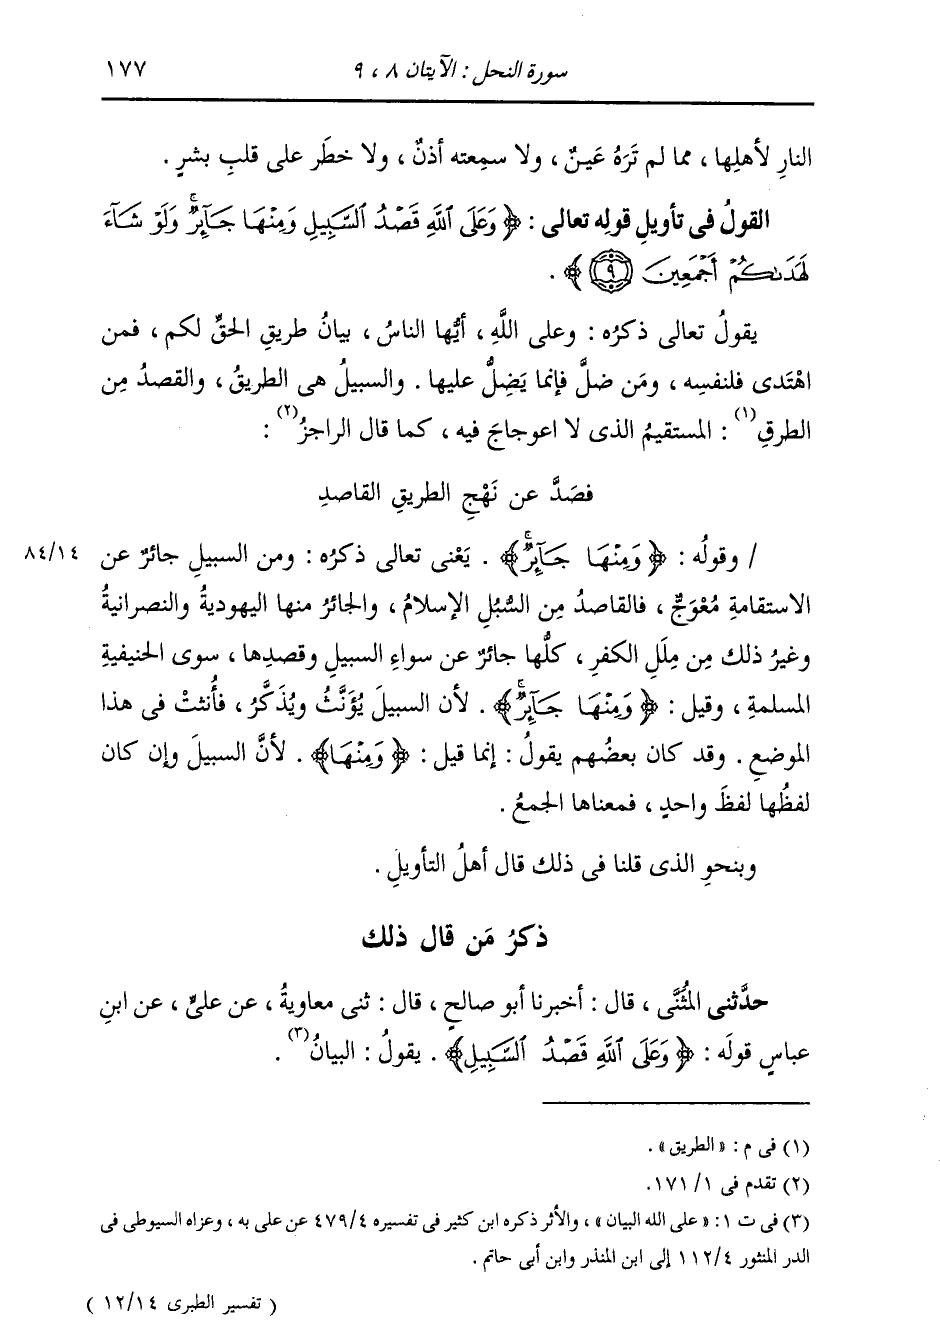 سورة النحل : الآيتان ٨ ، ٩ ١٧٧
النارِ لأهلِها ، مما لم تَرَهُ عَينٌ ، ولا سمِعته أذنٌ ، ولا خطَر على قلبِ بشرٍ .
القولُ فى تأويلِ قولِه تعالى : ﴿ وَعَلَى ٱللَّهِ قَصْدُ ٱلسَّبِيلِ وَمِنْهَا جَآئِرٌۚ وَلَوْ شَآءَ
لَهَدَىٰكُمْ أَجْمَعِينَ ٩ ﴾ .
يقولُ تعالى ذكرُه : وعلى اللَّهِ ، أيُّها الناسُ ، بيانُ طريقِ الحقِّ لكم ، فمن
اهْتَدى فلنفسِه ، ومَن ضلَّ فإنما يَضِلُّ عليها . والسبيلُ هى الطريقُ ، والقصدُ مِن
الطرقِ(١) : المستقيمُ الذى لا اعوجاجَ فيه ، كما قال الراجزُ(٢) :
فصَدَّ عن نَهْجِ الطريقِ القاصدِ
/ وقولُه : ﴿ وَمِنْهَا جَآئِرٌۚ ﴾ . يَعْنى تعالى ذكرُه : ومن السبيلِ جائرٌ عن ٨٤/١٤
الاستقامةِ مُعْوَجٌّ ، فالقاصدُ مِن السُّبُلِ الإسلامُ ، والجائرُ منها اليهوديةُ والنصرانيةُ
وغيرُ ذلك مِن مِلَلِ الكفرِ ، كلُّها جائرٌ عن سواءِ السبيلِ وقصدِها ، سوى الحنيفيةِ
المسلمةِ ، وقيل : ﴿ وَمِنْهَا جَآئِرٌۚ ﴾ . لأن السبيلَ يُؤَنَّثُ ويُذَكَّرُ ، فأُنثتْ فى هذا
الموضعِ . وقد كان بعضُهم يقولُ : إنما قيل : ﴿ وَمِنْهَا ﴾ . لأنَّ السبيلَ وإن كان
لفظُها لفظَ واحدٍ ، فمعناها الجمعُ .
وبنحوِ الذى قلنا فى ذلك قال أهلُ التأويلِ .
ذكرُ مَن قال ذلك
حدَّثنى المثُنَّى ، قال : أخبرنا أبو صالحٍ ، قال : ثنى معاويةُ ، عن علىٍّ ، عن ابنِ
عباسٍ قولَه : ﴿ وَعَلَى ٱللَّهِ قَصْدُ ٱلسَّبِيلِ ﴾ . يقولُ : البيانُ(٣) .
(١) فى م : « الطريق » .
(٢) تقدم فى ١/ ١٧١.
(٣) فى ت ١: « على الله البيان » ، والأثر ذكره ابن كثير فى تفسيره ٤٧٩/٤ عن على به ، وعزاه السيوطى فى
الدر المنثور ١١٢/٤ إلى ابن المنذر وابن أبى حاتم .
( تفسير الطبرى ١٢/١٤ )